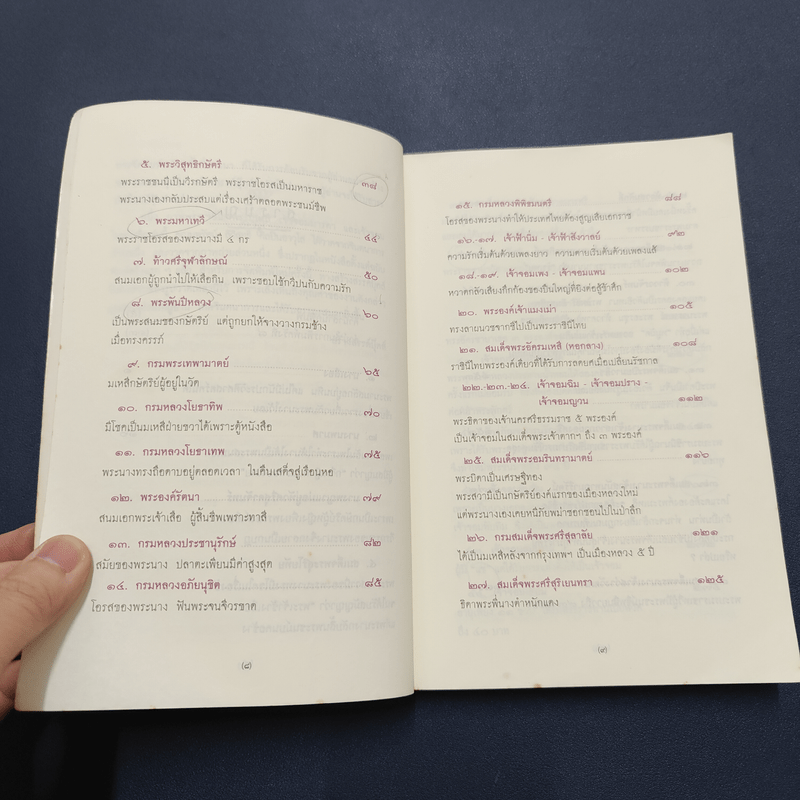 ๕. พระวิสุทธิกษัตรี ๓๘
พระราชชนนีเป็นวีรกษัตรี พระราชโอรสเป็นมหาราช
พระนางเองกลับประสบแต่เรื่องเศร้าตลอดพระชนม์ชีพ
๖. พระมหาเทวี ๔๔
พระราชโอรสของพระนางมี ๔ กร
๗. ท้าวศรีจุฬาลักษณ์ ๕๐
สนมเอกผู้ถูกนำไปให้เสือกิน เพราะชอบใช้กวีปนกับความรัก
๘. พระพันปีหลวง ๖๐
เป็นพระสนมของกษัตริย์ แต่ถูกยกให้จางวางกรมช้าง
เมื่อทรงครรภ์
๙. กรมพระเทพามาตย์ ๖๕
มเหสีกษัตริย์ผู้อยู่ในวัด
๑๐. กรมหลวงโยธาทิพ ๗๐
มีโชคเป็นมเหสีฝ่ายขวาได้เพราะตู้หนังสือ
๑๑. กรมหลวงโยธาเทพ ๗๕
พระนางทรงถือดาบอยู่ตลอดเวลา ในคืนเสด็จสู่เรือนหอ
๑๒. พระองค์รัตนา ๗๙
สนมเอกพระเจ้าเสือ ผู้สิ้นชีพเพราะทาสี
๑๓. กรมหลวงประชานุรักษ์ ๘๒
สมัยของพระนาง ปลาตะเพียนมีค่าสูงสุด
๑๔. กรมหลวงอภัยนุชิต ๘๕
โอรสของพระนาง ฟันพระขนจีวรขาด
(๘)
๑๕. กรมหลวงพิพิธมนตรี ๘๘
โอรสของพระนางทำให้ประเทศไทยต้องสูญเสียเอกราช
๑๖.-๑๗. เจ้าฟ้านิ่ม - เจ้าฟ้าสังวาลย์ ๙๒
ความรักเริ่มต้นด้วยเพลงยาว ความตายเริ่มต้นด้วยเพลงแส้
๑๘.-๑๙. เจ้าจอมเพง - เจ้าจอมแพน ๑๐๒
หวาดกลัวเสียงกึกก้องของปืนใหญ่ที่ยิงต่อสู้ข้าศึก
๒๐. พระองค์เจ้าแมงเม่า ๑๐๕
ทรงลาผนวชจากชีไปเป็นพระราชินีไทย
๒๑. สมเด็จพระอัครมเหสี (หอกลาง) ๑๐๘
ราชินีไทยพระองค์เดียวที่ได้รับการลดยศเมื่อเปลี่ยนรัชกาล
๒๒.-๒๓.-๒๔. เจ้าจอมฉิม - เจ้าจอมปราง -
เจ้าจอมญวน ๑๑๒
พระธิดาของเจ้านครศรีธรรมราช ๕ พระองค์
เป็นเจ้าจอมในสมเด็จพระเจ้าตากฯ ถึง ๓ พระองค์
๒๕. สมเด็จพระอมรินทรามาตย์ ๑๑๖
พระบิดาเป็นเศรษฐีทอง
พระสวามีเป็นกษัตริย์องค์แรกของเมืองหลวงใหม่
แต่พระนางเองเคยหนีภัยพม่าซอกซอนไปในป่าลึก
๒๖. กรมสมเด็จพระศรีสุลาลัย ๑๒๑
ได้เป็นมเหสีหลังจากกรุงเทพฯ เป็นเมืองหลวง ๕ ปี
๒๗. สมเด็จพระศรีสุริเยนทรา ๑๒๕
ธิดาพระพี่นางตำหนักแดง
(๙)